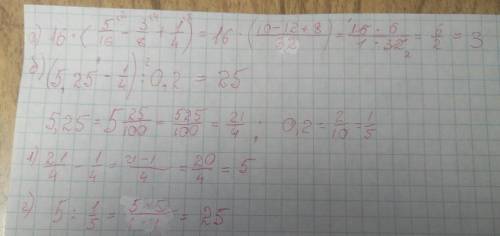 а) 16 · (5/16 - 3/8 + 1/4) = 16 · (10-12+8/32) = 16·6/1·32 2 = 6/2 = 3
б) (5,25 - 1/4) : 0,2 = 25
5,25 = 5 25/100 = 525/100 = 21/4 ; 0,2 = 2/10 = 1/5
1) 21/4 - 1/4 = 21-1/4 = 20/4 = 5
2) 5 : 1/5 = 5·5/1·1 = 25